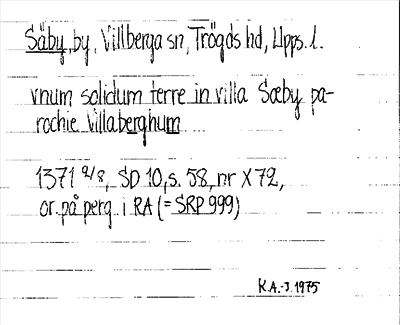 Säby, by, Villberga sn, Trögds hd, Upps. l.
vnum solidum terre in villa Sæby pa-
rochie Villaberghum
1371 2/8, SD 10, s. 58, nr X 72,
or. på perg. i RA (= SRP 999)
K.A.-J. 1975